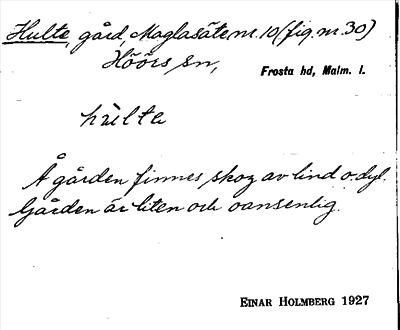 Hulte, gård, Maglasäte nr. 10 (fig. nr. 30)
Höörs sn, Frosta hd, Malm. l.
hùlta
Å gården finnes skog av lind o. dyl.
Gården är liten och oansenlig.
EINAR HOLMBERG 1927